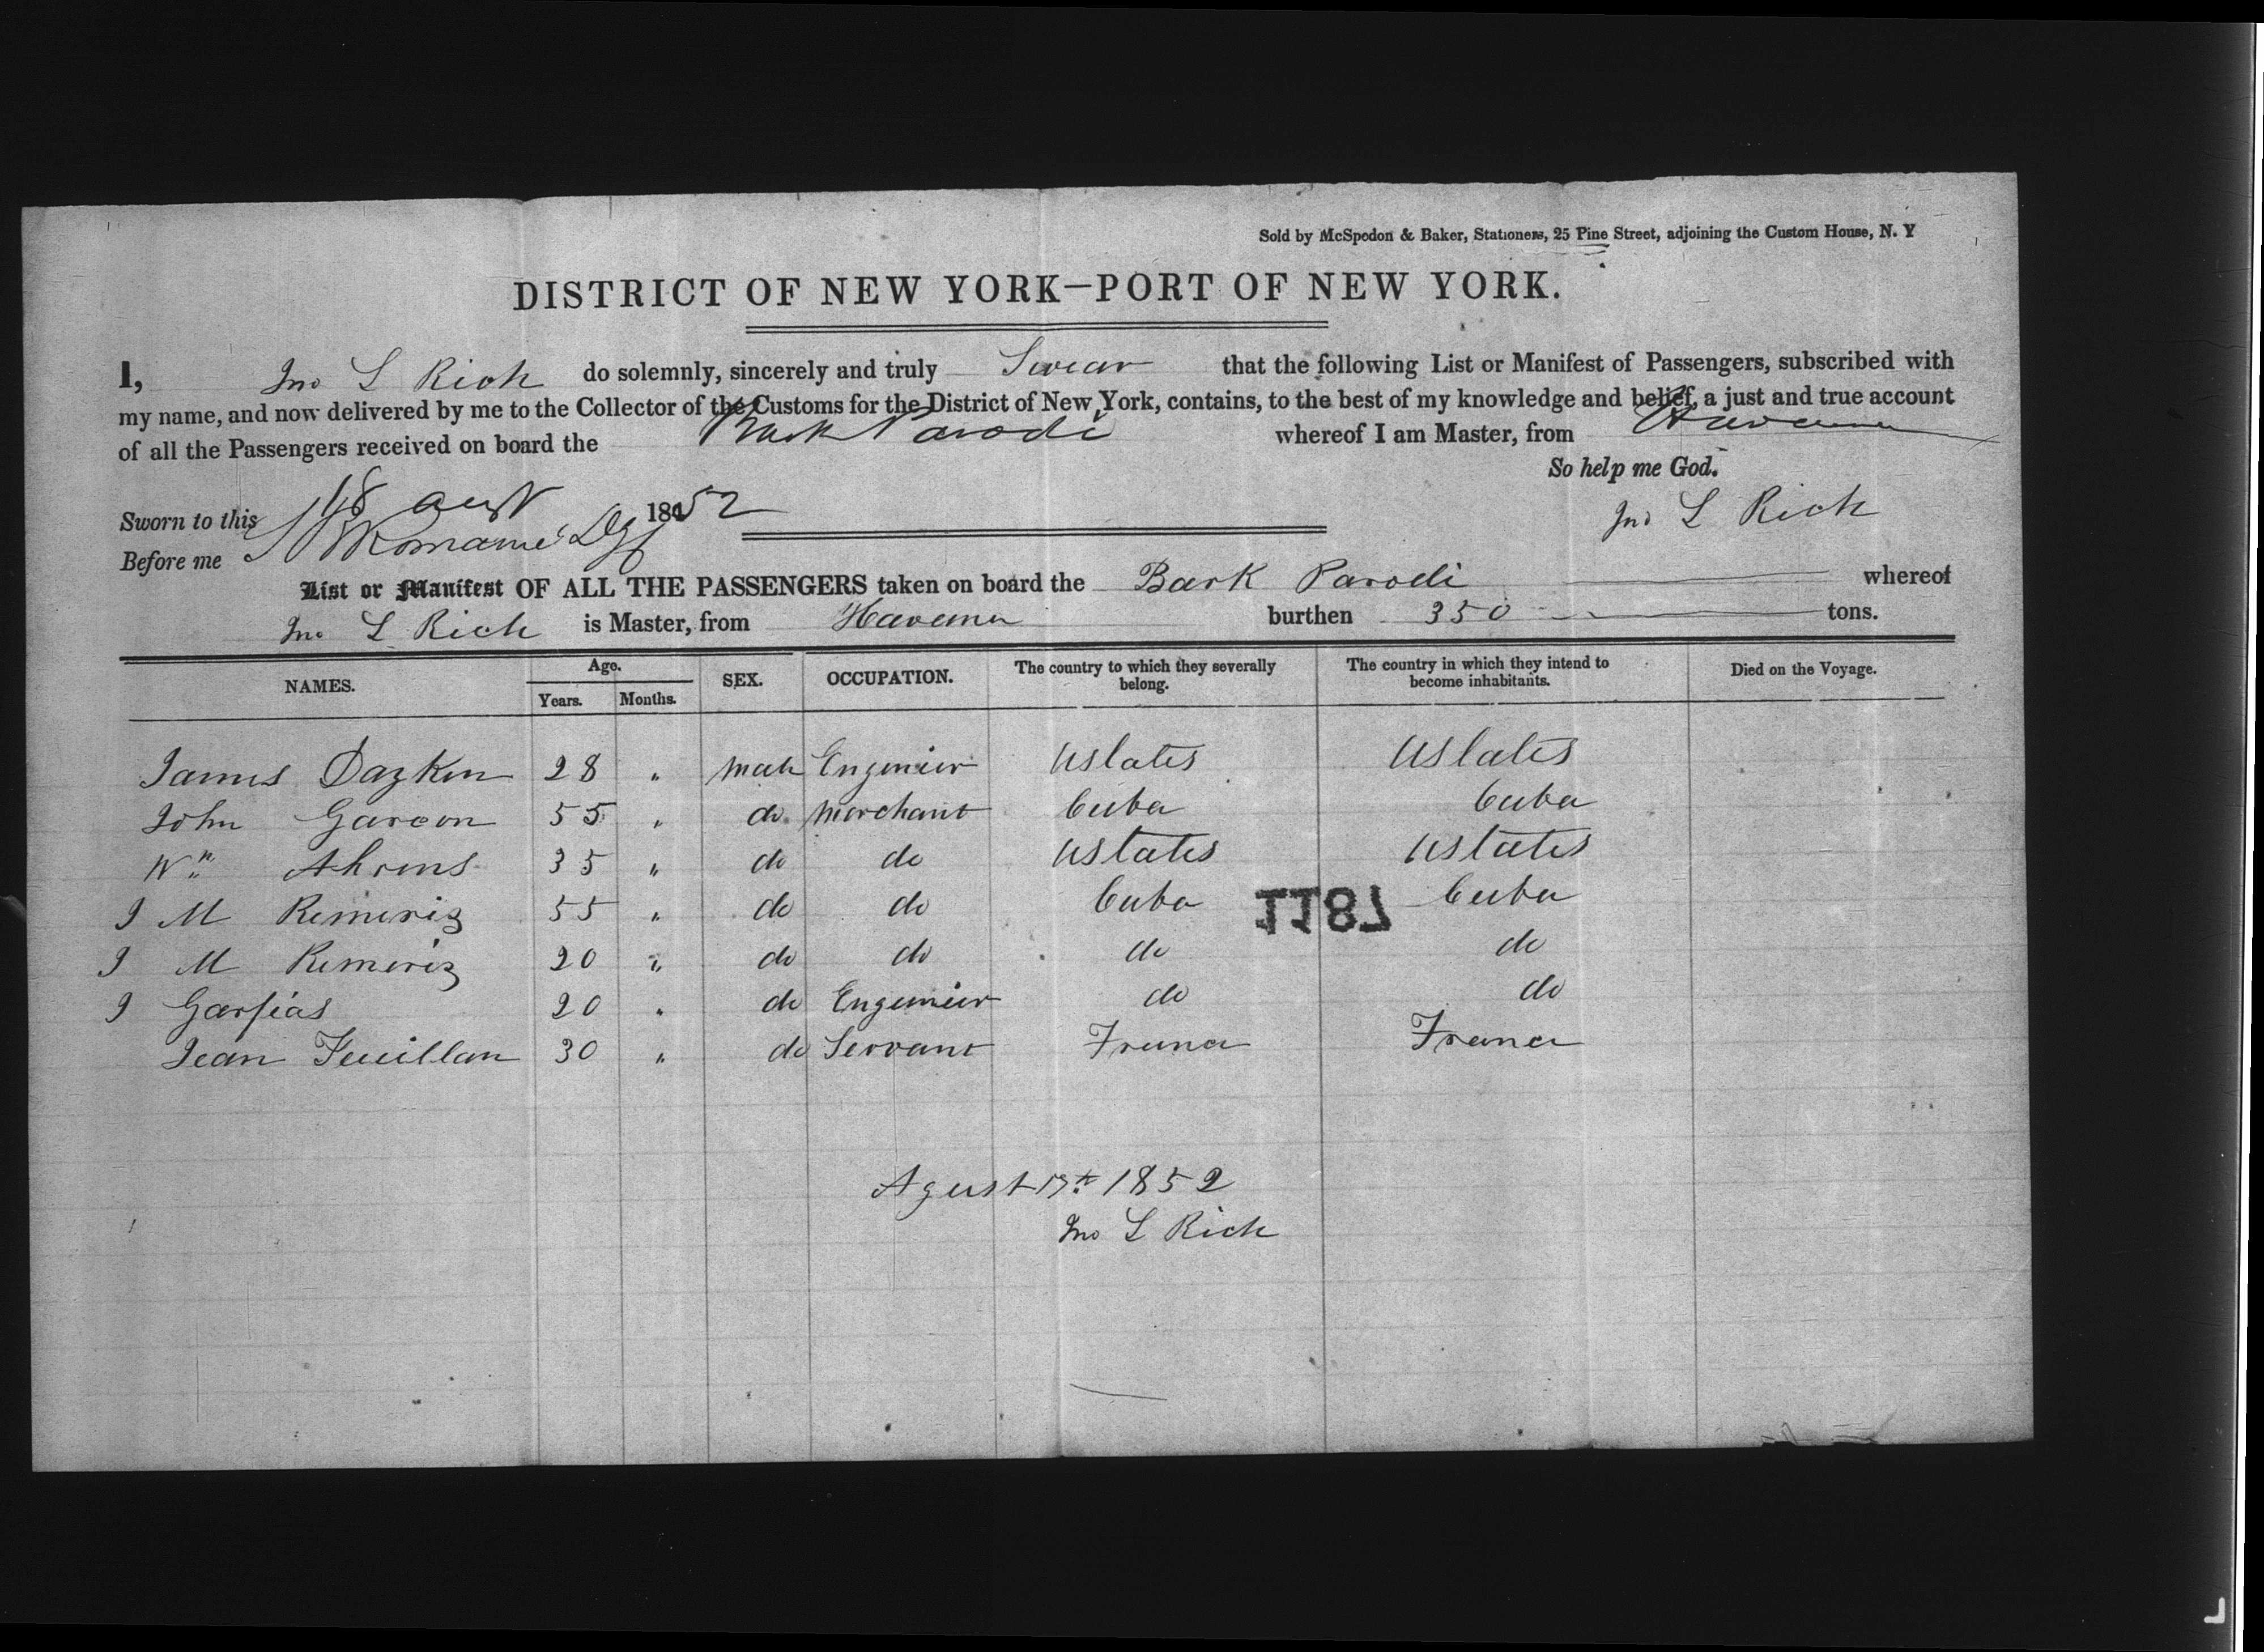 Sold by McSpedon & Baker, Stationers, 25 Pine Street, adjoining the Custom House, N. Y
DISTRICT OF NEW YORK—PORT OF NEW YORK.
I, Jno L Rich do solemnly, sincerely and truly Swear that the following List or Manifest of Passengers, subscribed with
my name, and now delivered by me to the Collector of the Customs for the District of New York, contains, to the best of my knowledge and belief, a just and true account
of all the Passengers received on board the Bark Parodi whereof I am Master, from Havana
So help me God.
Sworn to this 18 aust 1852
Jno L Rich
Before me
List or Manifest OF ALL THE PASSENGERS taken on board the Bark Parodi whereof
Jno L Rich is Master, from Havana burthen 350 tons.
NAMES. Age. Years. Months. SEX. OCCUPATION. The country to which they severally belong. The country in which they intend to become inhabitants. Died on the Voyage.
James Dazken 28 " male Engenier Ustates Ustates
John Garcon 55 " do merchant Cuba Cuba
Wm Ahrens 35 " do do Ustates Ustates
J M Remeriz 55 " do do Cuba Cuba
1187
J M Remeriz 20 " do do do do
J Garfias 20 " do Engenier do do
Jean Feuillan 30 " do Servant France France
Agust 17th 1852
Jno L Rich